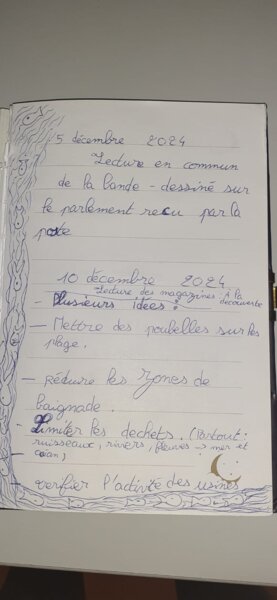 5 décembre 2024
Lecture en commun
de la bande-dessiné sur
le parlement recu par la
poste
10 décembre 2024
Lecture des magazines à la
découverte
- Plusieurs idées :
- Mettre des poubelles sur les
plage.
- réduire les zones de
baignade.
- Limiter les dechets. (Partout :
ruisseaux, rivers, fleuves → mer et
océan)
- verifier l'activité des usines